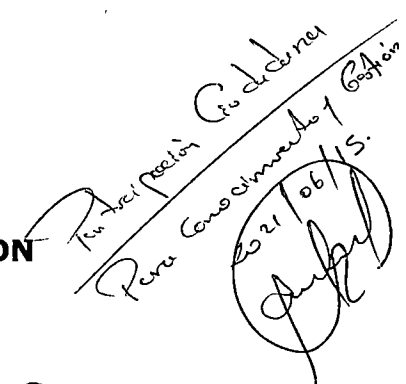 Participación Ciudadana
Para Conocimiento y Gestión
2021/06/15.
ON